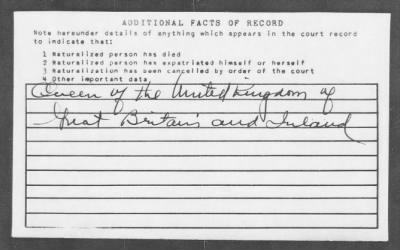 ADDITIONAL FACTS OF RECORD
Note hereunder details of anything which appears in the court record
to indicate that:
1 Naturalized person has died
2 Naturalized person has expatriated himself or herself
3 Naturalization has been cancelled by order of the court
4 Other important data,
Queen of the United Kingdom of
Great Britain and Ireland